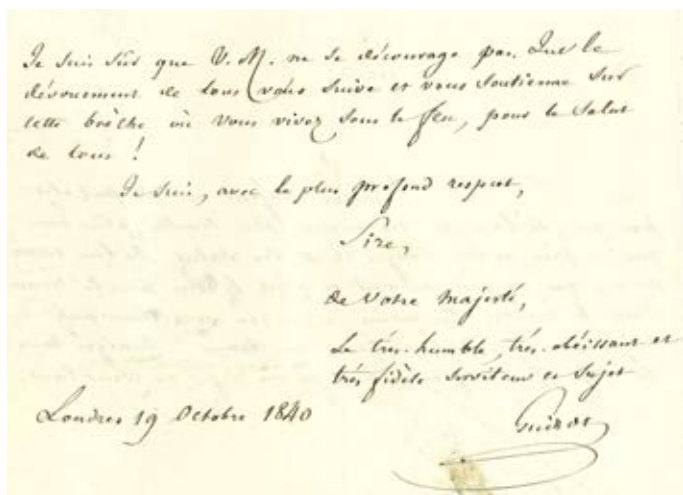 Je suis sûr que V. M. ne se décourage pas. Que le
dévouement de tous vous suive et vous soutienne sur
cette brèche où vous vivez sous le feu, pour le salut
de tous !
Je suis, avec le plus profond respect,
Sire,
de Votre Majesté,
Le très-humble, très-obéissant et
très fidèle serviteur et sujet
Londres 19 Octobre 1840
Guizot